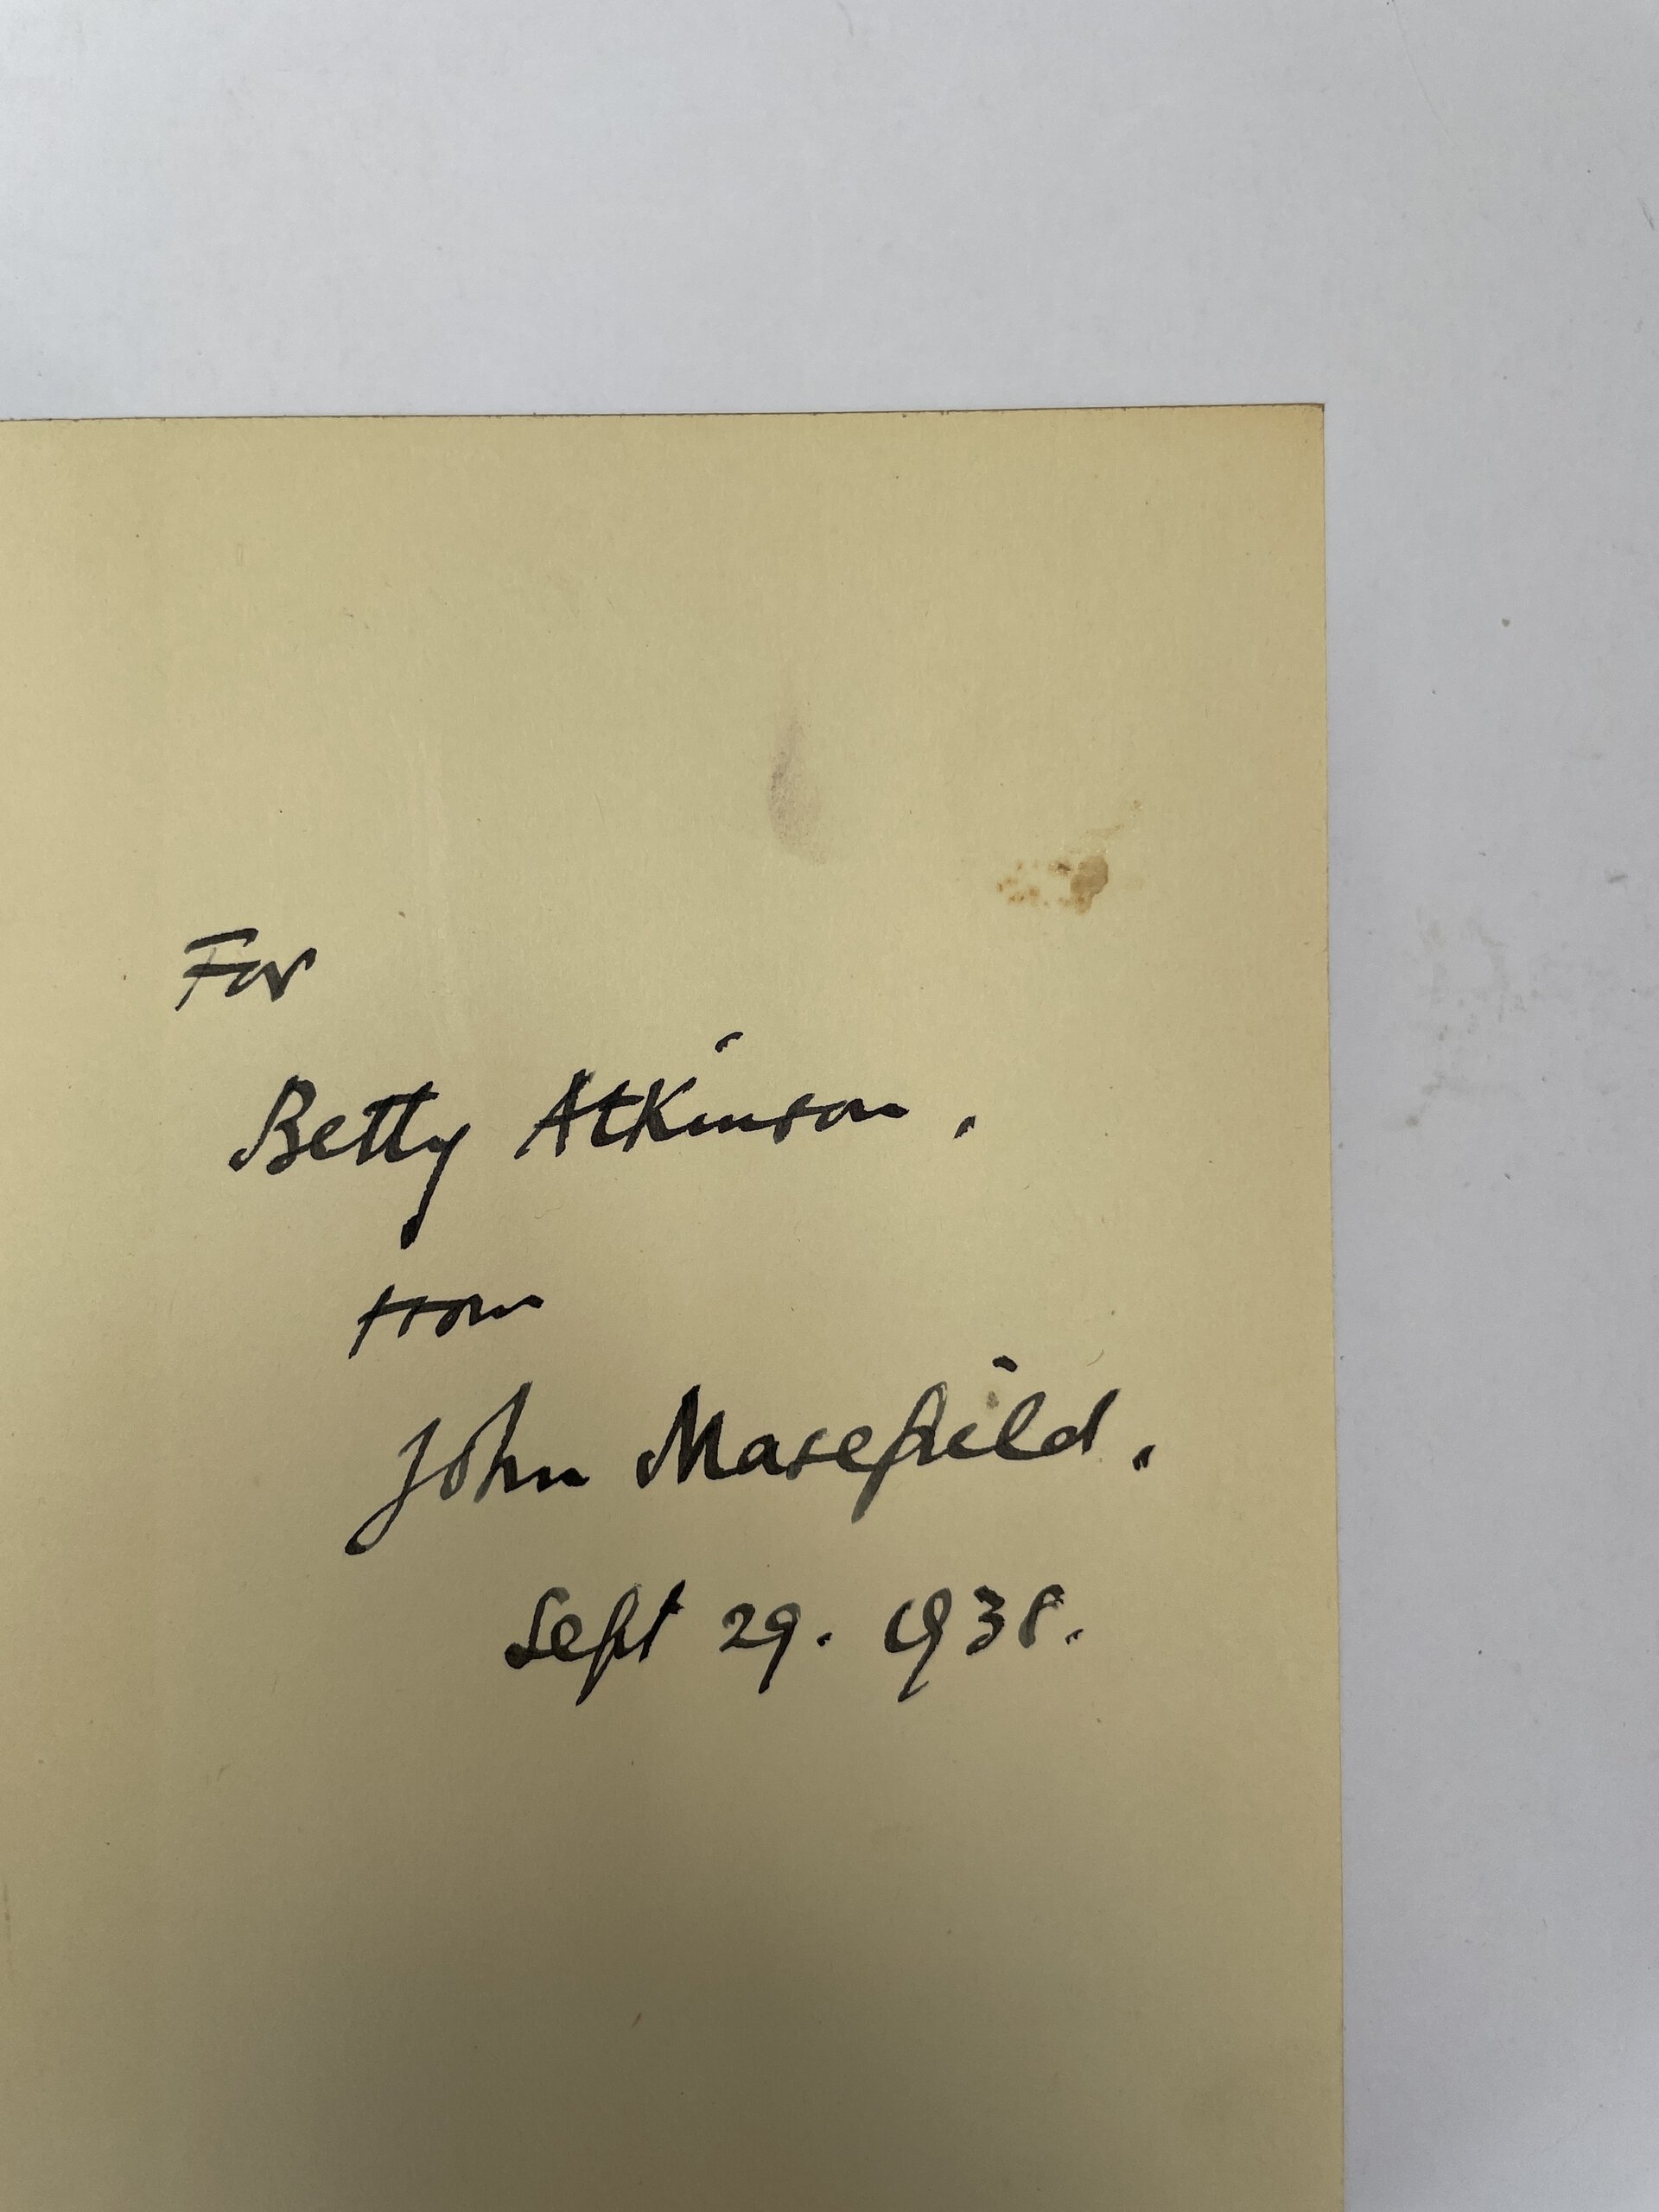 For
Betty Atkinson.
from
John Masefield.
Sept 29. 1938.